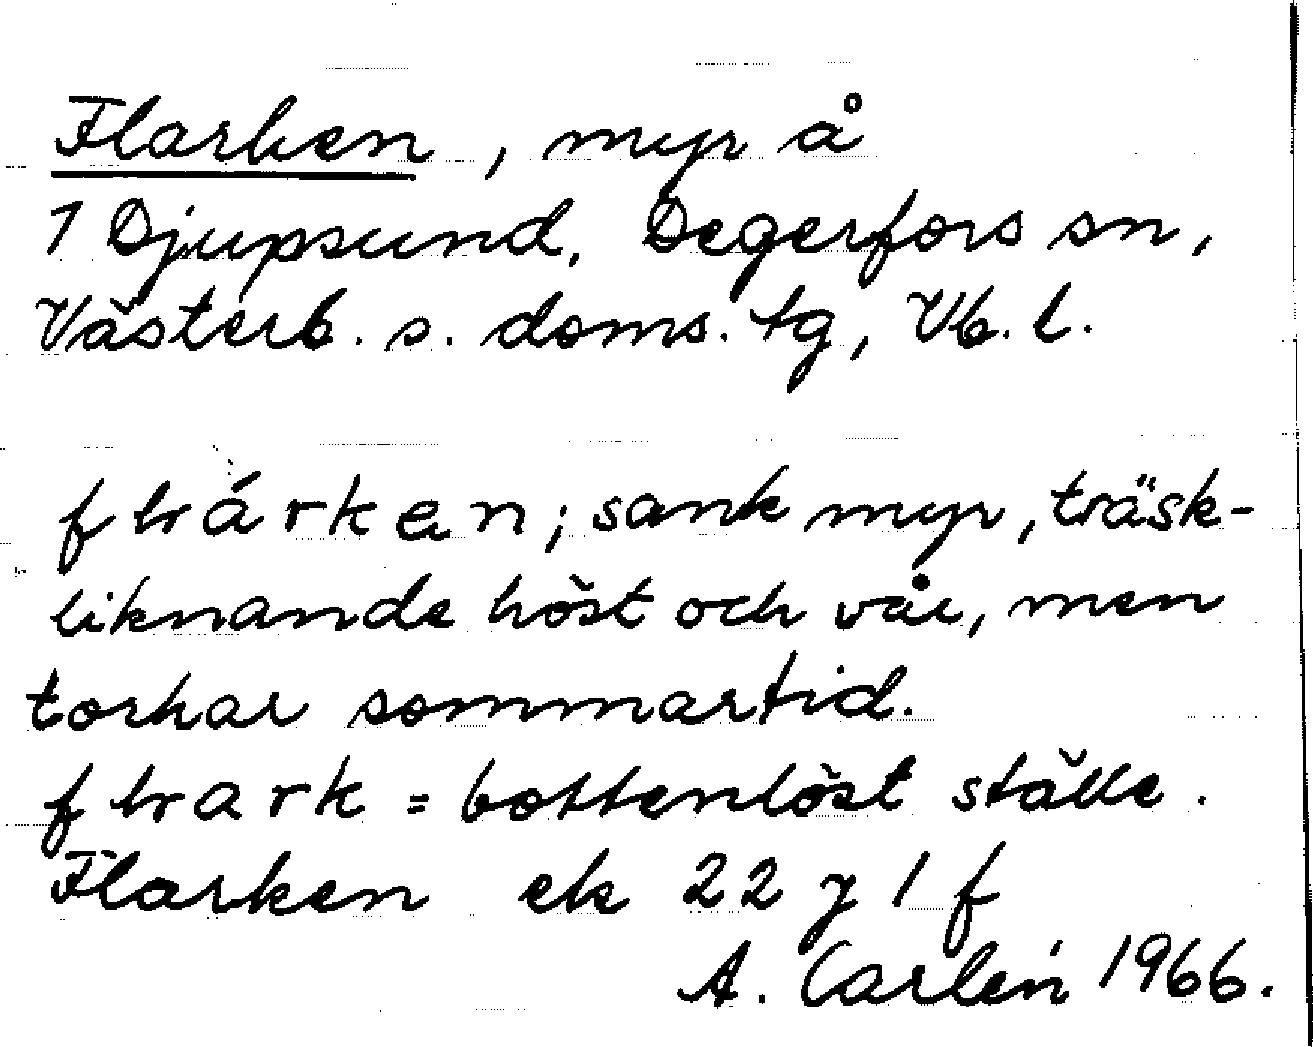 Flarken, myr å
1 Djupsund, Degerfors sn,
Västerb. s. doms. tg, Vb. l.
flrárken; sank myr, träsk-
liknande höst och vår, men
torkar sommartid.
flrark = bottenlöst ställe.
Flarken ek 22 J 1 f
A. Carlén 1966.